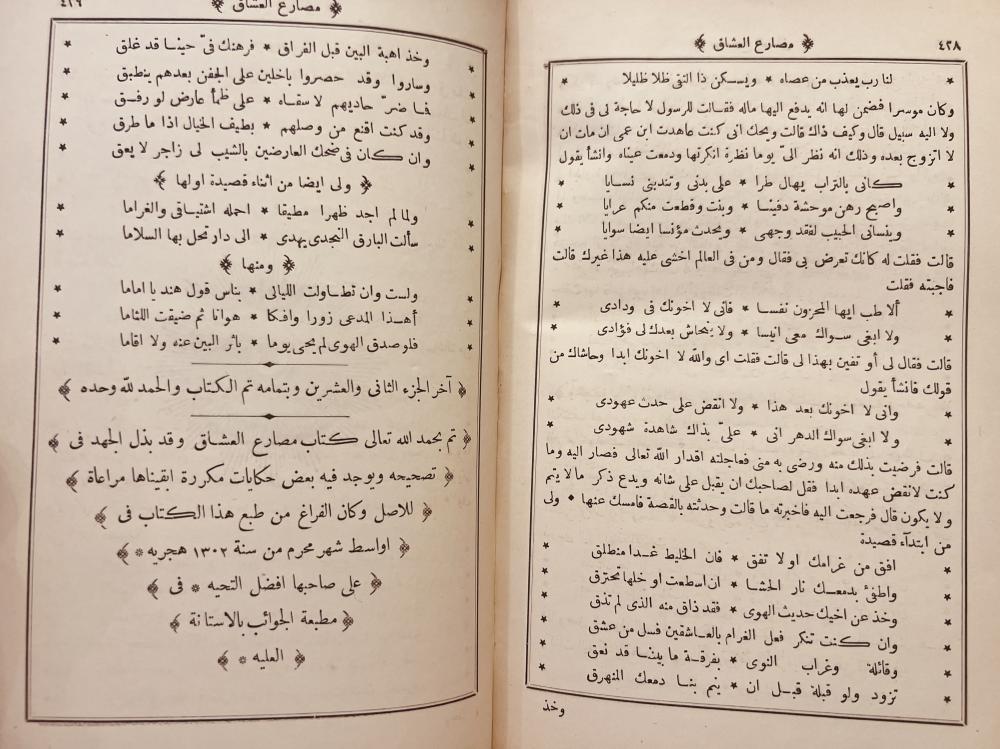 ٤٢٨ ﴿ مصارع العشاق ﴾
* لنا رب يعذب من عصاه * ويسكن ذا التقى ظلا ظليلا *
وكان موسرا فضمن لها انه يدفع اليها ماله فقالت للرسول لا حاجة لى فى ذلك
ولا اليه سبيل قال وكيف ذاك قالت ويحك انى كنت عاهدت ابن عمى ان مات ان
لا اتزوج بعده وذلك انه نظر الىّ يوما نظرة انكرتها ودمعت عيناه وانشأ يقول
* كانى بالتراب يهال طرا * على بدنى وتندبنى نسايا *
* واصبح رهن موحشة دفينا * وبنت وقطعت منكم عرايا *
* وينسانى الحبيب لفقد وجهى * ويحدث مؤنسا ايضا سوايا *
قالت فقلت له كانك تعرض بى فقال ومن فى العالم اخشى عليه هذا غيرك قالت
فاجبته فقلت
* ألا طب ايها المحزون نفسا * فانى لا اخونك فى ودادى *
* ولا ابغى سواك معى انيسا * ولا ينحاش بعدك لى فؤادى *
قالت فقال لى أو تفين بهذا لى قالت فقلت اى والله لا اخونك ابدا وحاشاك من
قولك فانشأ يقول
* وانى لا اخونك بعد هذا * ولا انقض على حدث عهودى *
* ولا ابغى سواك الدهر انى * علىّ بذاك شاهدة شهودى *
قالت فرضيت بذلك منه ورضى به منى فعاجلته اقدار الله تعالى فصار اليه وما
كنت لانقض عهده ابدا فقل لصاحبك ان يقبل على شانه ويدع ذكر ما لا يتم
ولا يكون قال فرجعت اليه فاخبرته ما قالت وحدثته بالقصة فامسك عنها * ولى
من ابتدآء قصيدة
* افق من غرامك او لا تفق * فان الخليط غدا منطلق *
* واطفئ بدمعك نار الحشا * ان اسطعت او خلها تحترق *
* وخذ عن اخيك حديث الهوى * فقد ذاق منه الذى لم تذق *
* وان كنت تنكر فعل الغرام بالعاشقين فسل من عشق *
* وقائلة وغراب النوى * بفرقة ما بيننا قد نعق *
* تزود ولو قبلة قبل ان * ينم بنا دمعك المنهرق *
وخذ
﴿ مصارع العشاق ﴾ ٤٢٩
* وخذ اهبة البين قبل الفراق * فرهنك فىّ حينا قد غلق *
* وساروا وقد حصروا باخلين على الجفن بعدهم ينطبق *
* فما ضرّ حاديهم لا سقاه * على ظمأ عارض لو رفق *
* وقد كنت اقنع من وصلهم * بطيف الخيال اذا ما طرق *
* وان كان فى ضحك العارضين بالشيب لى زاجر لا يعق *
﴿ ولى ايضا من اثناء قصيدة اولها ﴾
* ولما لم اجد ظهرا مطيقا * احمله اشتياقى والغراما *
* سألت البارق النجدى يهدى * الى دار تحل بها السلاما *
﴿ ومنها ﴾
* ولست وان تطاولت الليالى * بناس قول هند يا اماما *
* أهذا المدعى زورا وافكا * هوانا ثم ضيقت اللثاما *
* فلو صدق الهوى لم يحى يوما * باثر البين عنه ولا اقاما *
﴿ آخر الجزء الثانى والعشرين وبتمامه تم الكتاب والحمد لله وحده ﴾
﴿ تم بحمد الله تعالى كتاب مصارع العشاق وقد بذل الجهد فى ﴾
﴿ تصحيحه ويوجد فيه بعض حكايات مكررة ابقيناها مراعاة ﴾
﴿ للاصل وكان الفراغ من طبع هذا الكتاب فى ﴾
﴿ اواسط شهر محرم من سنة ١٣٠٢ هجريه * ﴾
﴿ على صاحبها افضل التحيه * فى ﴾
﴿ مطبعة الجوائب بالاستانة ﴾
﴿ العليه * ﴾